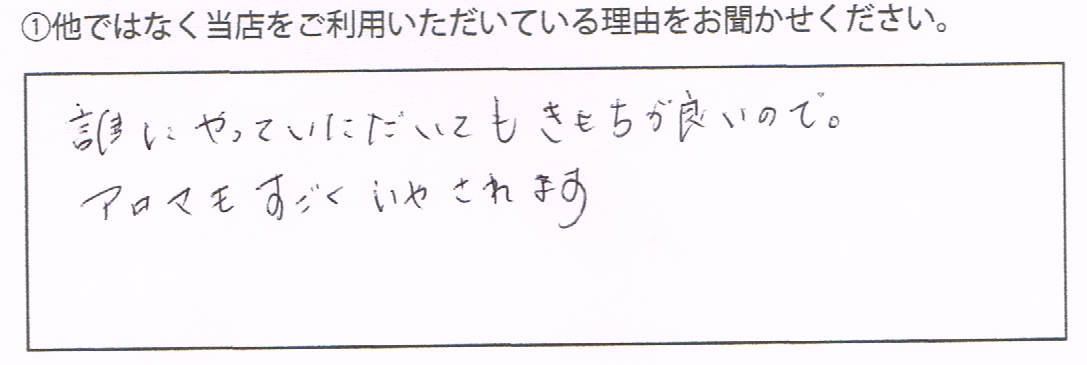 ①他ではなく当店をご利用いただいている理由をお聞かせください。
誰にやっていただいてもきもちが良いので。
アロマもすごくいやされます